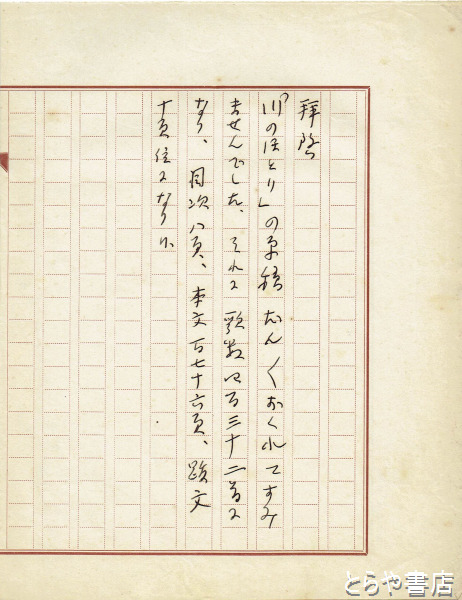 拝啓
「川のほとり」の原稿だん〱おくれてすみ
ませんでした、それに歌数四百三十二首に
なり、目次八頁、本文百七十六頁、跋文
十頁位になり
とらや書店